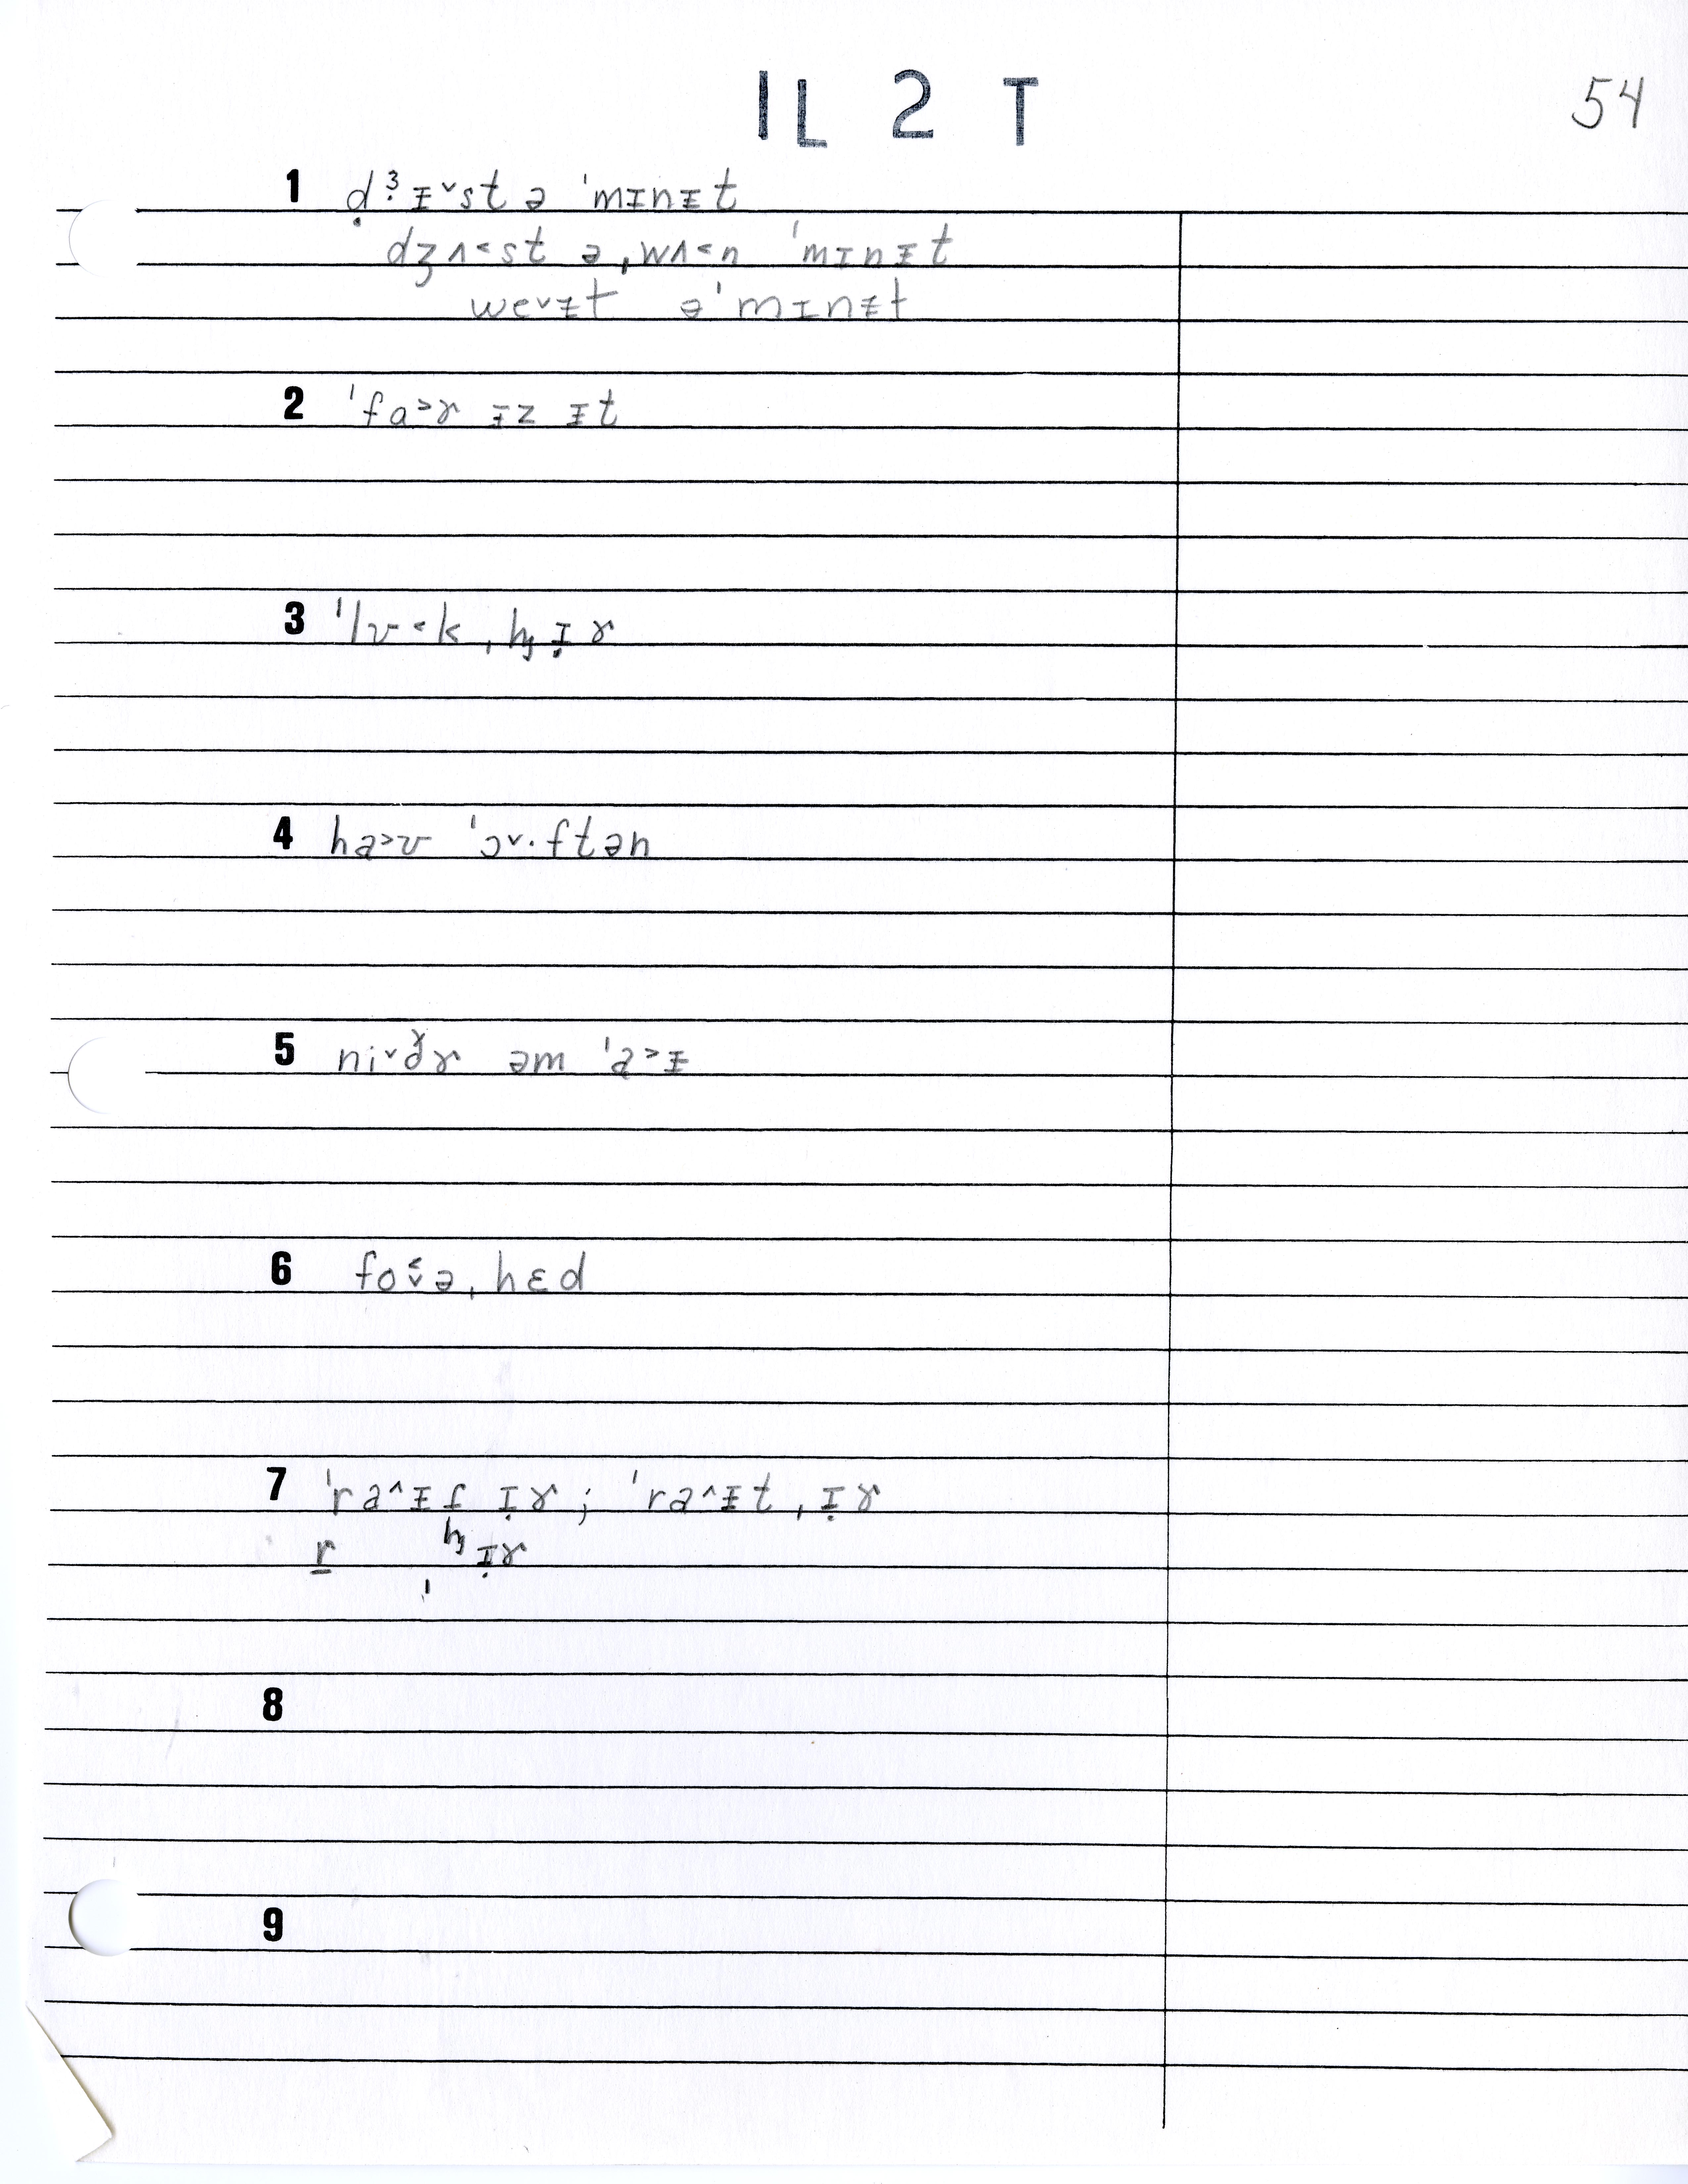 IL 2 T
54
1 ḍᶾᵻ˅st ə ˈmɪnᵻt
dʒʌ˂st ə ˌwʌ˂n ˈmɪnᵻt
we˅ᵻt ə ˈmɪnᵻt
2 ˈfa˃ɚ ᵻz ᵻt
3 ˈlʊ˂k ˌhjɪ̣ɚ
4 ha˃ʊ ˈɔ˅·ftən
5 ni˅ðɚ əm ˈa˃ᵻ
6 fo˅˂ə ˌhɛd
7 ˈra˄ᵻf ɪ̣ɚ; ˈra˄ᵻt ˌɪ̣ɚ
r hjɪ̣ɚ
8
9